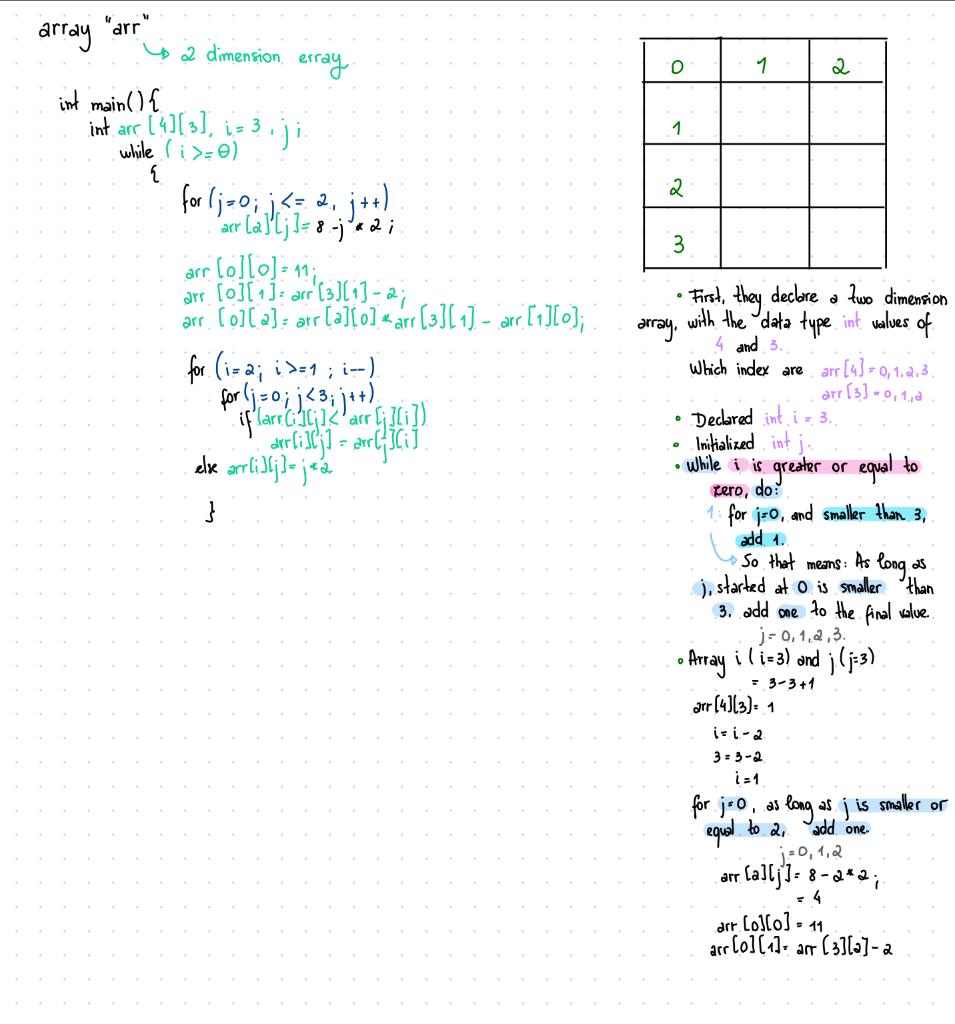 array "arr"
2 dimension erray
int main(){
int arr [4][3], i = 3 , j ;
while ( i >= 0)
{
for (j=0; j <= 2, j++)
arr [2][j]= 8 -j * 2 ;
arr [0][0] = 11;
arr [0][1]= arr[3][1] - 2;
arr [0][2] = arr[2][0] * arr[3][1] - arr[1][0];
for (i=2; i >=1 ; i--)
for (j=0; j<3; j++)
if (arr[i][j] < arr[j][i])
arr[i][j] = arr[j][i]
else arr[i][j]= j * 2
}
0 1 2
1
2
3
• First, they declare a two dimension
array, with the data type int values of
4 and 3.
Which index are arr[4] = 0,1,2,3.
arr[3] = 0,1,2
• Declared int i = 3.
• Initialized int j.
• While i is greater or equal to
zero, do:
1. for j=0, and smaller than 3,
add 1.
So that means: As long as
j, started at 0 is smaller than
3, add one to the final value.
j = 0,1,2,3.
• Array i ( i=3) and j (j=3)
= 3-3+1
arr[4][3]= 1
i = i - 2
3 = 3-2
i = 1
for j=0, as long as j is smaller or
equal to 2, add one.
j=0,1,2
arr [2][j]= 8 - 2 * 2 ;
= 4
arr [0][0] = 11
arr[0][1]= arr [3][2] - 2